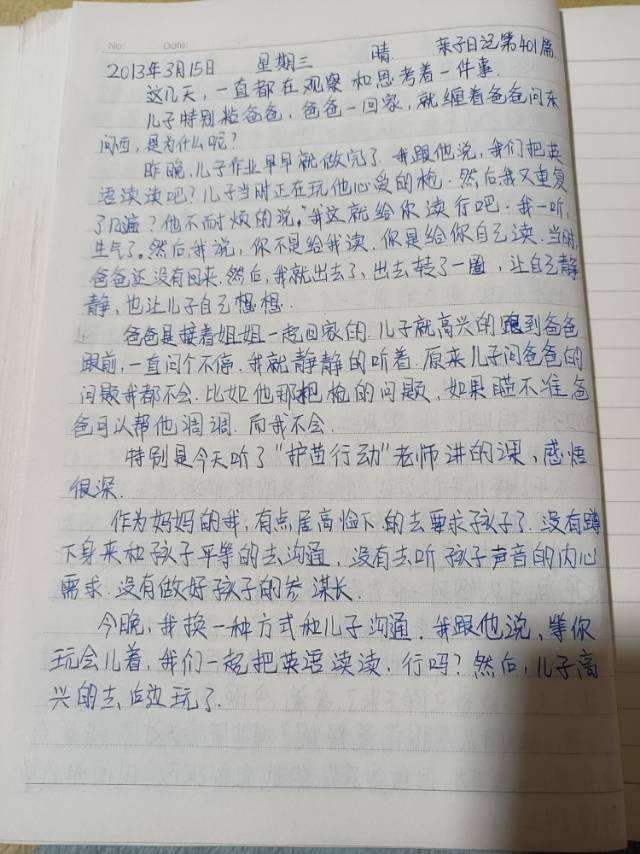 No:          Date:
2013年3月15日    星期三    晴    亲子日记第401篇
这几天，一直都在观察和思考着一件事.
儿子特别粘爸爸，爸爸一回家，就缠着爸爸问东
问西，是为什么呢？
昨晚，儿子作业早早就做完了.我跟他说，我们把英
语读读吧？儿子当时正在玩他心爱的枪.然后，我又重复
了几遍？他不耐烦的说，"我这就给你读行吧.我一听，
生气了，然后，我说，你不是给我读，你是给你自己读.当时，
爸爸还没有回来.然后，我就出去了，出去转了一圈，让自己静
静，也让儿子自己想想.
爸爸是接着姐姐一起回家的.儿子就高兴的跑到爸爸
跟前，一直问个不停.我就静静的听着.原来儿子问爸爸的
问题我都不会.比如他那把枪的问题，如果瞄不准，爸
爸可以帮他调调.而我不会.
特别是今天听了"护苗行动"老师讲的课，感悟
很深.
作为妈妈的我，有点居高临下的去要求孩子了.没有蹲
下身来和孩子平等的去沟通，没有去听孩子声音的内心
需求.没有做好孩子的参谋长.
今晚，我换一种方式和儿子沟通.我跟他说，等你
玩会儿着，我们一起把英语读读.行吗？然后，儿子高
兴的去后边玩了.